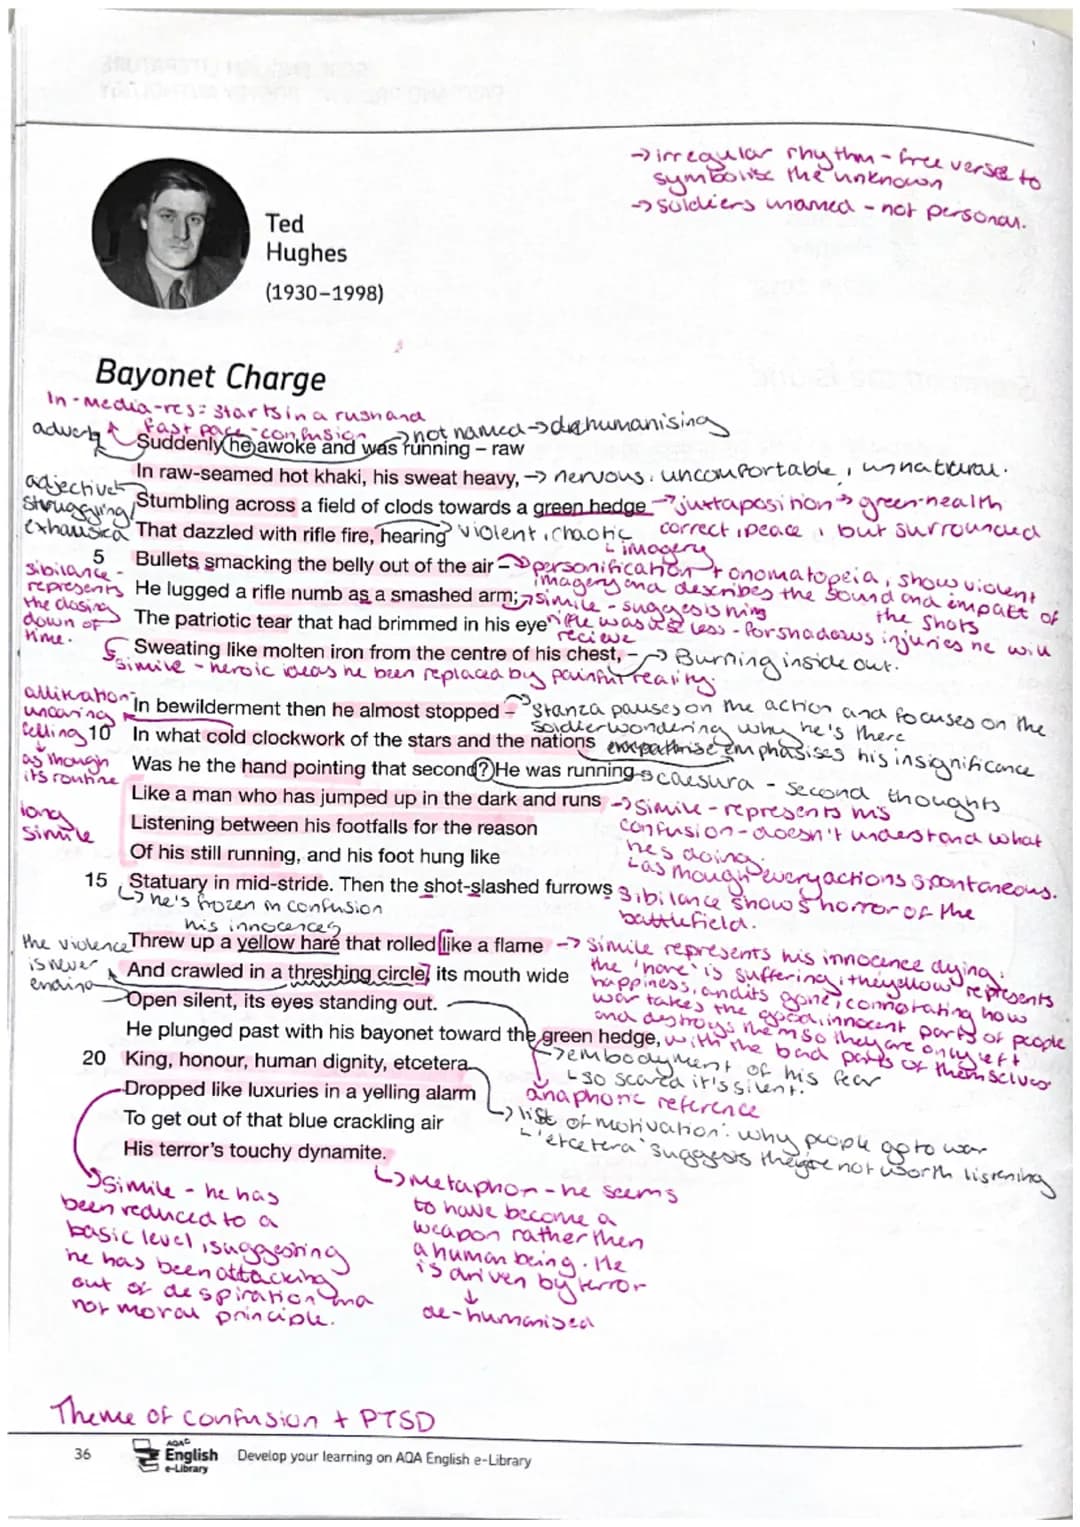 → irregular rhythm - free verse to
symbolise the unknown
→ soldiers unamed - not personal.
Ted
Hughes
(1930–1998)
Bayonet Charge
In-media-res: starts in a rush and
fast pace - confusion
→ not named → dehumanising
adverb
Suddenly he awoke and was running – raw
In raw-seamed hot khaki, his sweat heavy,
→ nervous, uncomfortable, unnatural.
adjective
struggling/
exhausted
Stumbling across a field of clods towards a green hedge
→ juxtaposition → green-health
correct, peace, but surrounded
That dazzled with rifle fire, hearing
violent, chaotic
imagery
5
Bullets smacking the belly out of the air –
→ personification + onomatopeia, show violent
imagery and describes the sound and impact of
the shots
sibilance -
represents
the closing
down of
time.
He lugged a rifle numb as a smashed arm;
→ simile - suggests his
rifle was useless - forshadows injuries he will
recieve
The patriotic tear that had brimmed in his eye
Sweating like molten iron from the centre of his chest, –
→ Burning inside out.
simile - heroic ideas he been replaced by painful reality.
alliteration
uncaring
felling
as though
its routine
In bewilderment then he almost stopped –
Stanza pauses on the action and focuses on the
soldier wondering why he's there
10
In what cold clockwork of the stars and the nations
emphasises his insignificance
Was he the hand pointing that second? He was running
→ caesura - second thoughts
long
simile
Like a man who has jumped up in the dark and runs
→ simile - represents his
confusion - doesn't understand what
hes doing.
Listening between his footfalls for the reason
Of his still running, and his foot hung like
as though every actions spontaneous.
15
Statuary in mid-stride. Then the shot-slashed furrows
→ he's frozen in confusion
sibilance shows horror of the
battlefield.
his innocences
the violence
is never
ending
Threw up a yellow hare that rolled like a flame
→ simile represents his innocence dying.
the 'hare' is suffering, the yellow represents
happiness, and its gone, connotating how
war takes the good, innocent parts of people
and destroys them so they are only left
with the bad parts of themselves
And crawled in a threshing circle, its mouth wide
Open silent, its eyes standing out.
→ embodyment of his fear
so scared it's silent.
He plunged past with his bayonet toward the green hedge,
anaphoric reference
20
King, honour, human dignity, etcetera
→ list of motivation: why people go to war
'etcetera' suggests they're not worth listening
Dropped like luxuries in a yelling alarm
To get out of that blue crackling air
His terror's touchy dynamite.
simile - he has
been reduced to a
basic level, suggesting
he has been attacking
out of despiration and
not moral principle.
→ Metaphor - he seems
to have become a
weapon rather then
a human being. He
is driven by terror
↓
de-humanised
Theme of confusion + PTSD
36
AQA
English
e-Library
Develop your learning on AQA English e-Library